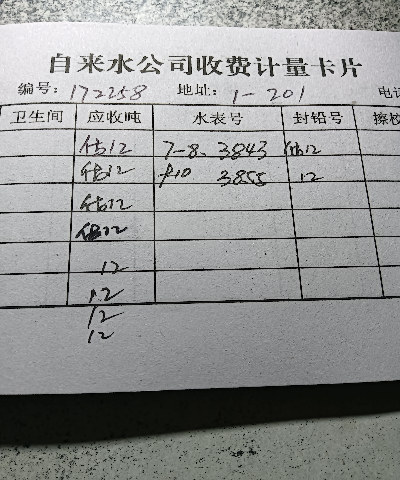 自来水公司收费计量卡片
编号: 172258 地址: 1-201 电话
卫生间 应收吨 水表号 封铅号 擦校
估12 7-8. 3843 估12
估12 3855 12
估12
估12
12
12
12
12